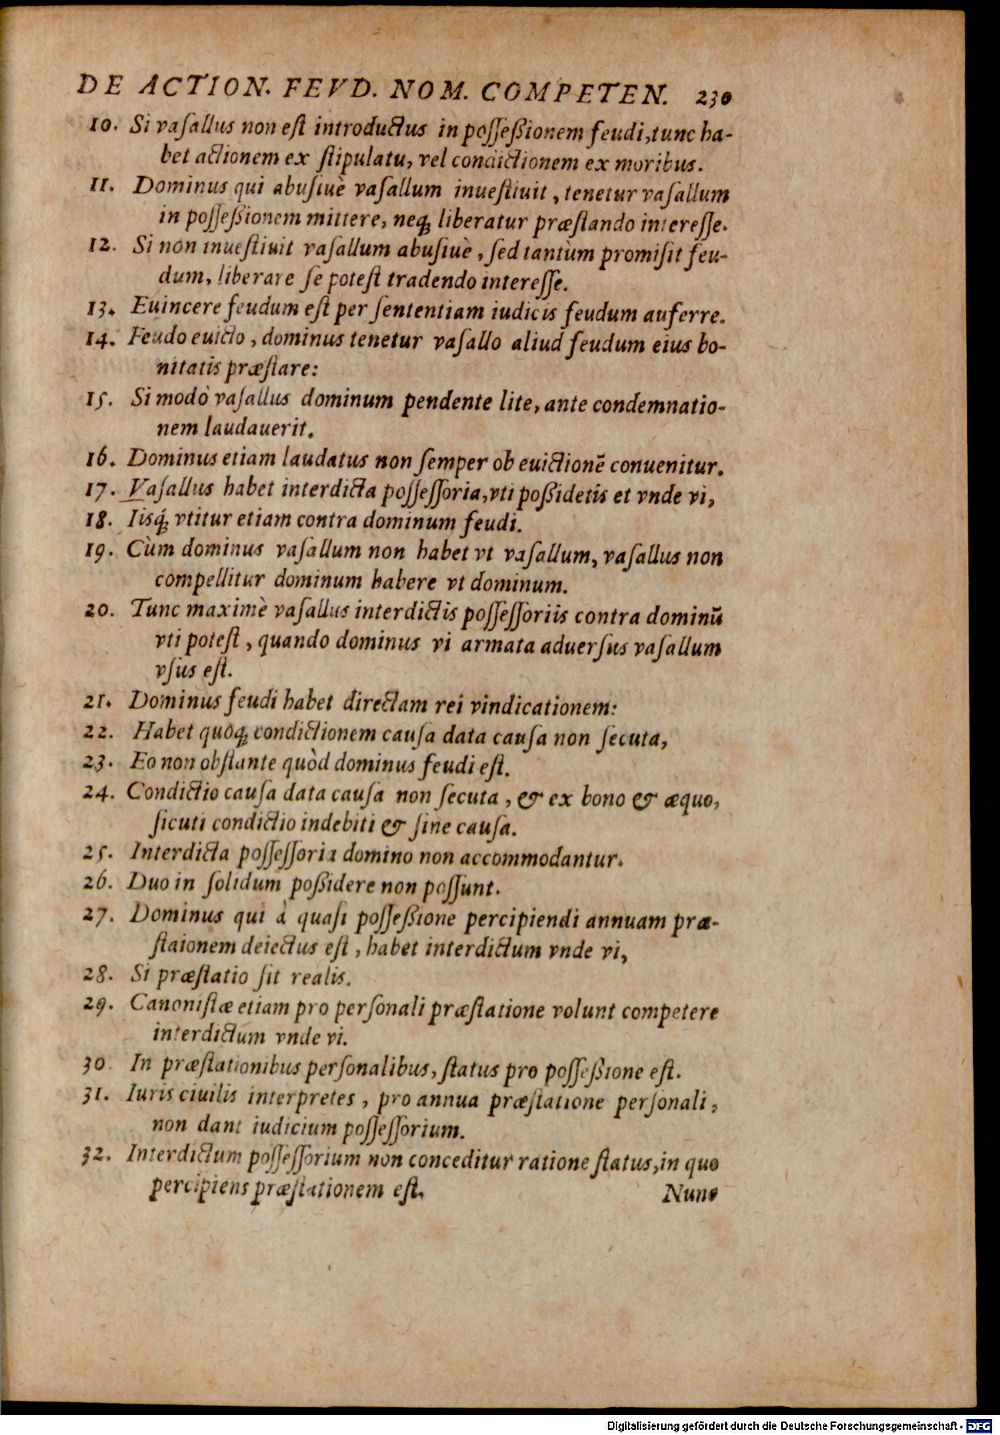 DE ACTION. FEVD. NOM. COMPETEN. 230
10. Si vaſallus non eſt introductus in poſſeßionem feudi, tunc ha-
bet actionem ex ſtipulatu, vel condictionem ex moribus.
11. Dominus qui abuſiuè vaſallum inueſtiuit, tenetur vaſallum
in poſſeßionem mittere, neq́; liberatur præſtando intereſſe.
12. Si non inueſtiuit vaſallum abuſiuè, ſed tantùm promiſit feu-
dum, liberare ſe poteſt tradendo intereſſe.
13. Euincere feudum eſt per ſententiam iudicis feudum auferre.
14. Feudo euicto, dominus tenetur vaſallo aliud feudum eius bo-
nitatis præſtare:
15. Si modò vaſallus dominum pendente lite, ante condemnatio-
nem laudauerit.
16. Dominus etiam laudatus non ſemper ob euictionē conuenitur.
17. Vaſallus habet interdicta poſſeſſoria, vti poßidetis et vnde vi,
18. Iisq́; vtitur etiam contra dominum feudi.
19. Cùm dominus vaſallum non habet vt vaſallum, vaſallus non
compellitur dominum habere vt dominum.
20. Tunc maximè vaſallus interdictis poſſeſſoriis contra dominū
vti poteſt, quando dominus vi armata aduerſus vaſallum
vſus eſt.
21. Dominus feudi habet directam rei vindicationem:
22. Habet quoq; condictionem cauſa data cauſa non ſecuta,
23. Eo non obſtante quòd dominus feudi eſt.
24. Condictio cauſa data cauſa non ſecuta, & ex bono & æquo,
ſicuti condictio indebiti & ſine cauſa.
25. Interdicta poſſeſſoria domino non accommodantur.
26. Duo in ſolidum poßidere non poſſunt.
27. Dominus qui à quaſi poſſeßione percipiendi annuam præ-
ſtaionem deiectus eſt, habet interdictum vnde vi,
28. Si præſtatio ſit realis.
29. Canoniſtæ etiam pro perſonali præſtatione volunt competere
interdictum vnde vi.
30. In præſtationibus perſonalibus, ſtatus pro poſſeßione eſt.
31. Iuris ciuilis interpretes, pro annua præſtatione perſonali,
non dant iudicium poſſeſſorium.
32. Interdictum poſſeſſorium non conceditur ratione ſtatus, in quo
percipiens præſtationem eſt.
Nunc
Digitalisierung gefördert durch die Deutsche Forschungsgemeinschaft - DFG